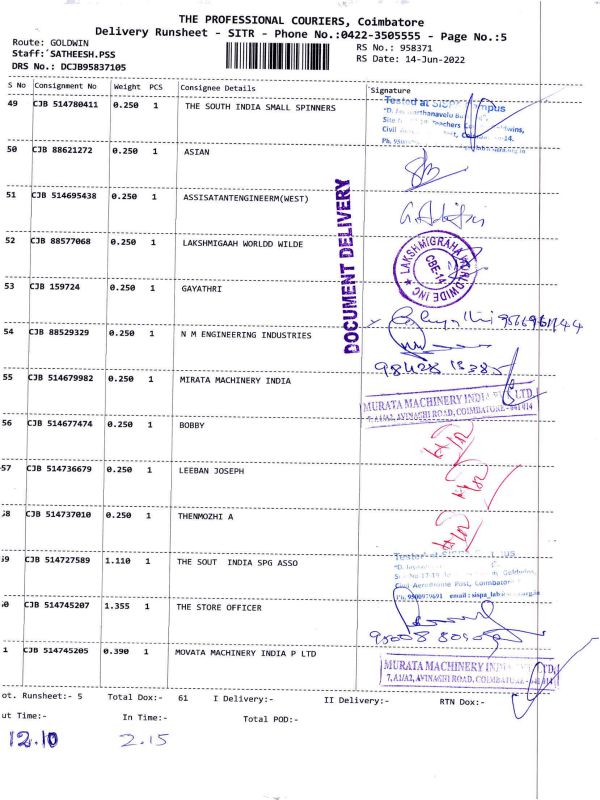 THE PROFESSIONAL COURIERS, Coimbatore
Delivery Runsheet - SITR - Phone No.:0422-3505555 - Page No.:5
Route: GOLDWIN
Staff: SATHEESH.PSS
DRS No.: DCJB95837105
RS No.: 958371
RS Date: 14-Jun-2022
S No Consignment No Weight PCS Consignee Details Signature
49 CJB 514780411 0.250 1 THE SOUTH INDIA SMALL SPINNERS
Tested at
50 CJB 88621272 0.250 1 ASIAN
51 CJB 514695438 0.250 1 ASSISATANTENGINEERM(WEST)
DOCUMENT DELIVERY
52 CJB 88577068 0.250 1 LAKSHMIGAAH WORLDD WILDE
LAKSHMIGRAHA WORLDWIDE INC
CBE-14
53 CJB 159724 0.250 1 GAYATHRI
54 CJB 88529329 0.250 1 N M ENGINEERING INDUSTRIES
55 CJB 514679982 0.250 1 MIRATA MACHINERY INDIA
MURATA MACHINERY INDIA LTD.
7, A1/A2, AVINASHI ROAD, COIMBATORE - 641 014
56 CJB 514677474 0.250 1 BOBBY
57 CJB 514736679 0.250 1 LEEBAN JOSEPH
58 CJB 514737010 0.250 1 THENMOZHI A
59 CJB 514727589 1.110 1 THE SOUT INDIA SPG ASSO
Civil Aerodrome Post, Coimbatore
Ph. 9500979691 email :
0 CJB 514745207 1.355 1 THE STORE OFFICER
1 CJB 514745205 0.390 1 MOVATA MACHINERY INDIA P LTD
MURATA MACHINERY LTD.
7, A1/A2, AVINASHI ROAD, COIMBATORE - 641 014
ot. Runsheet:- 5 Total Dox:- 61 I Delivery:- II Delivery:- RTN Dox:-
ut Time:- In Time:- Total POD:-
12.10 2.15